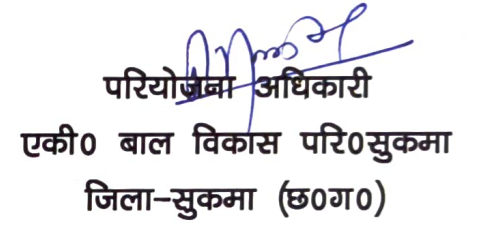 परियोजना अधिकारी
एकी0 बाल विकास परि0सुकमा
जिला-सुकमा (छ0ग0)